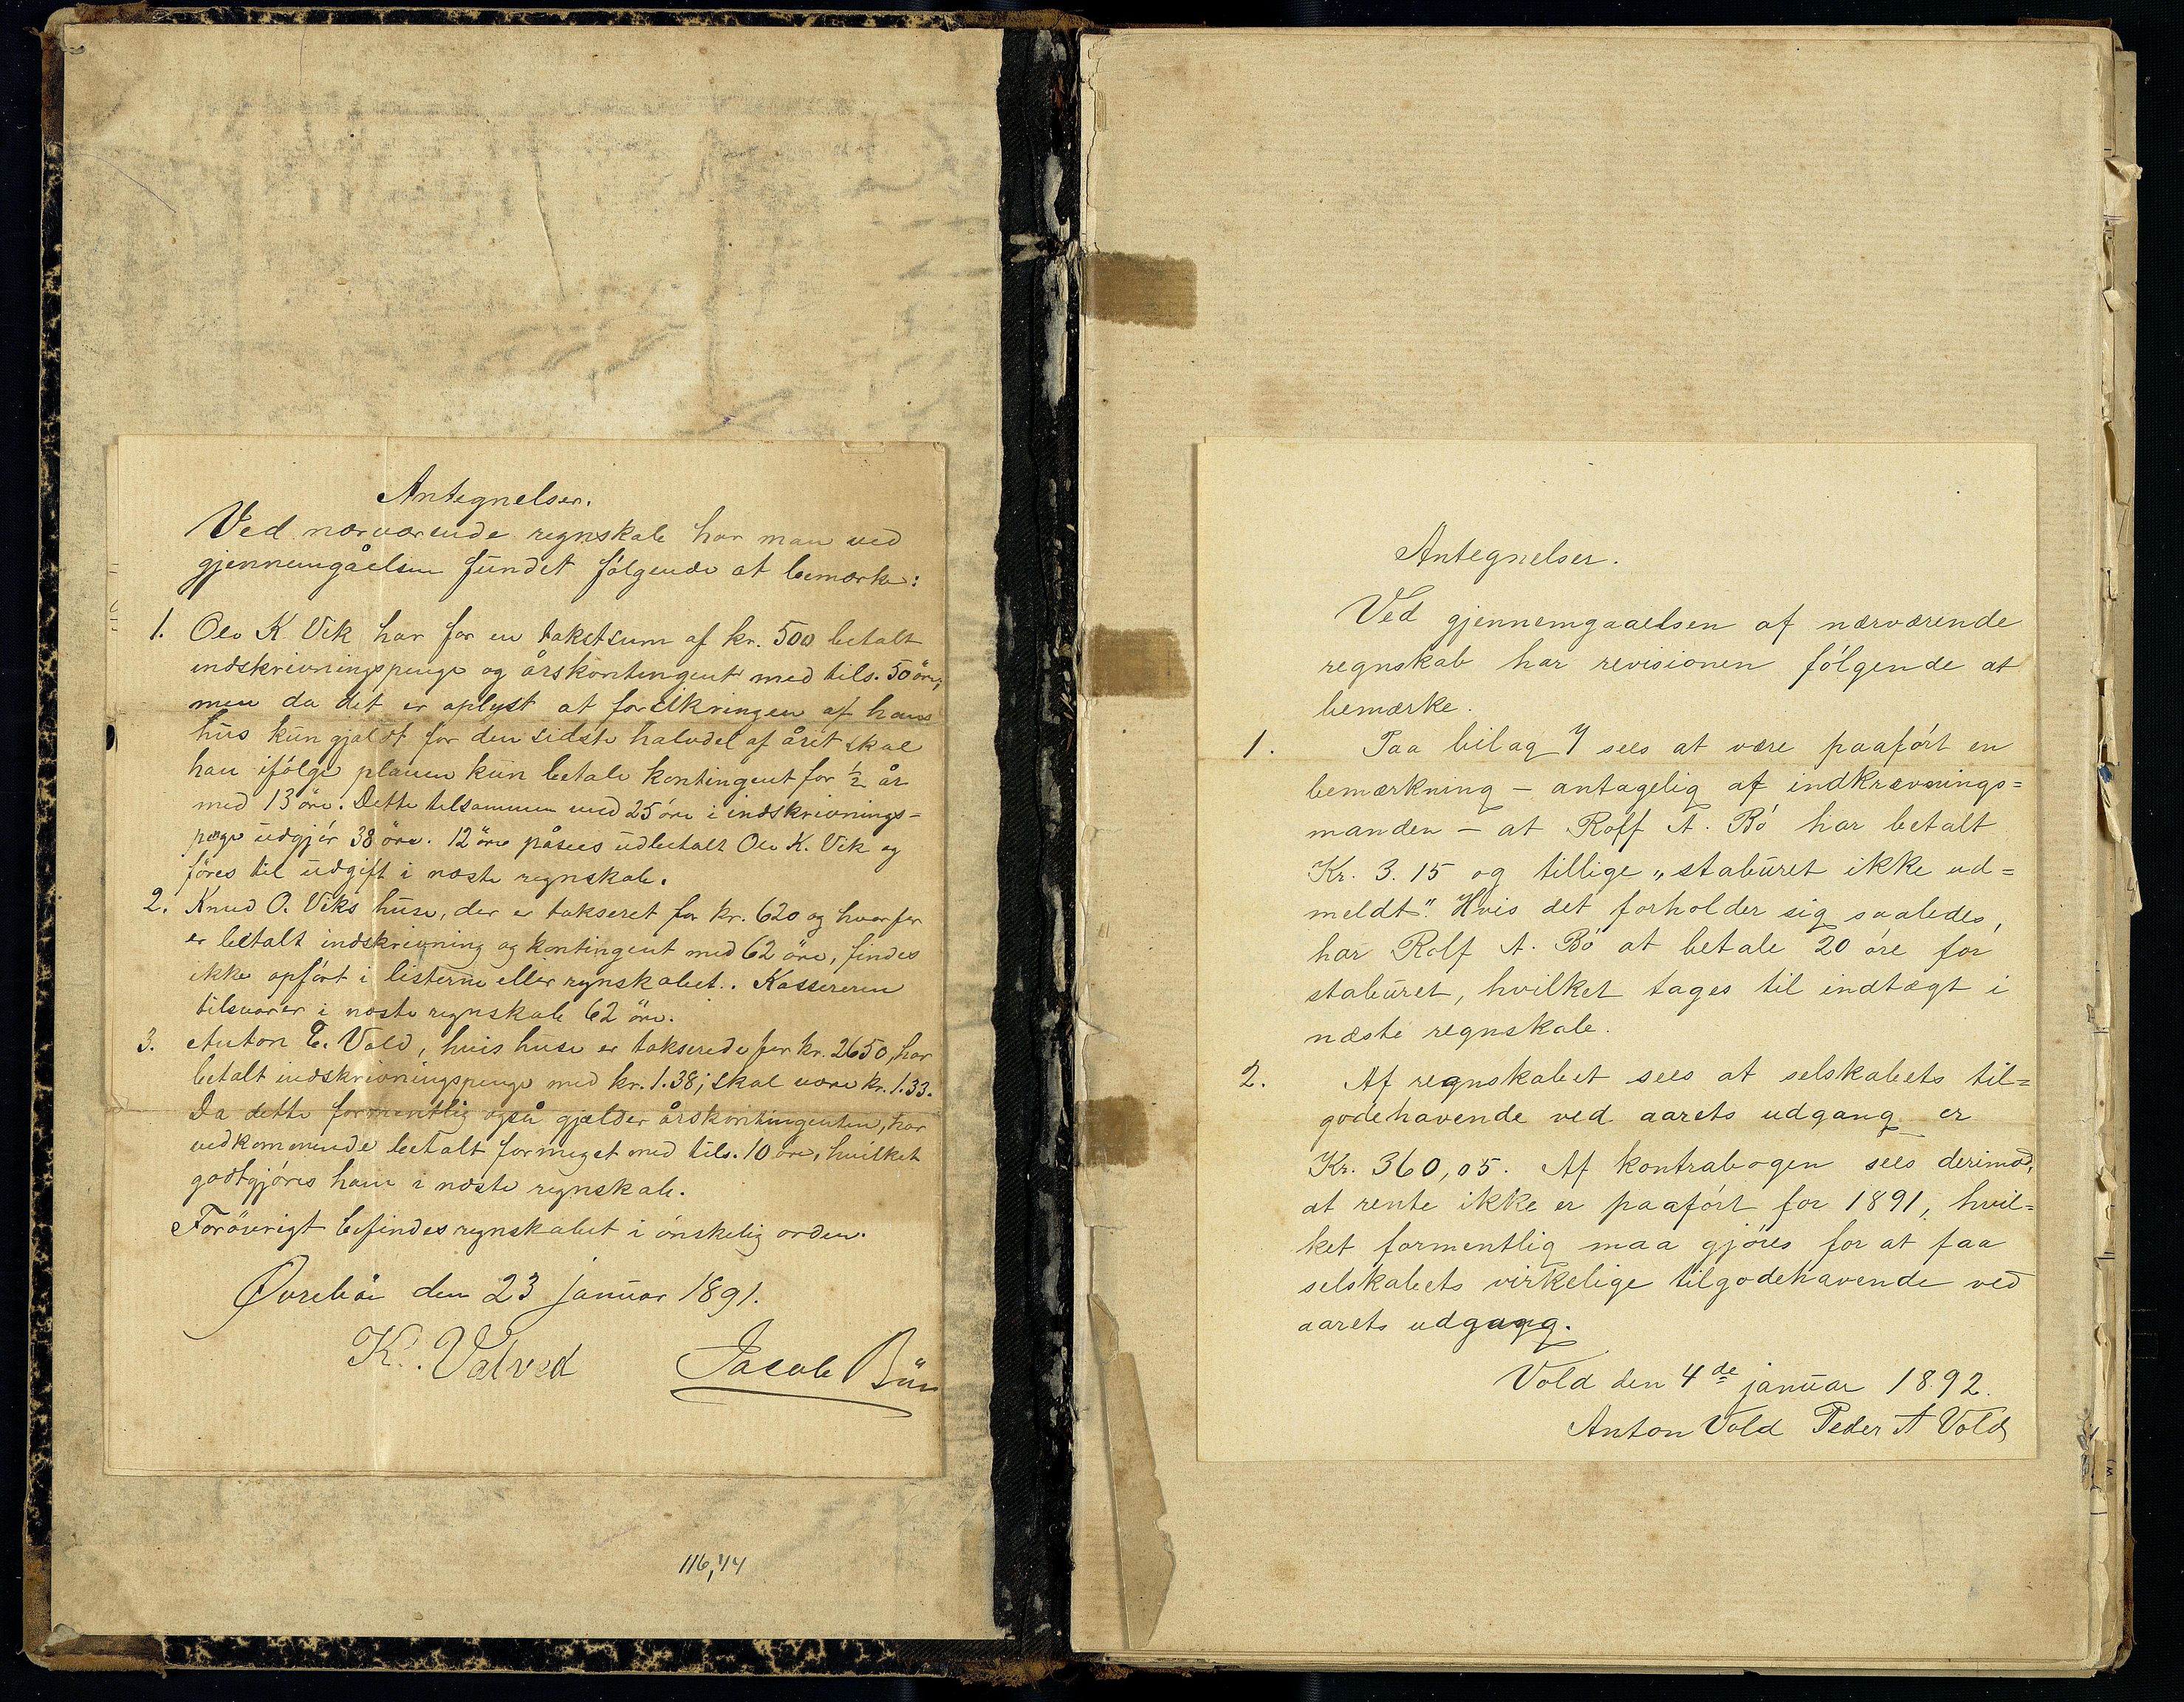 Antegnelser.
Ved nærværende regnskab har man ved
gjennemgåelsen fundet følgende at bemærke:
1. Ole K. Vik har for en takstsum af kr. 500 betalt
indskrivningspenge og årskontingent med tils. 50 öre,
men da det er oplyst at forsikringen af hans
hus kun gjaldt for den sidste halvdel af året skal
han ifölge planen kun betale kontingent for ½ år
med 13 öre. Dette tilsammen med 25 öre i indskrivnings-
penge udgjör 38 öre. 12 öre påsees udbetalt Ole K. Vik og
föres til udgift i næste regnskab.
2. Knud O. Viks huse, der er takseret for kr. 620 og hvorfor
er betalt indskrivning og kontingent med 62 öre, findes
ikke opfört i listerne eller regnskabet. Kassereren
tilsvarer i næste regnskab 62 öre.
3. Anton E. Vold, hvis huse er takserede for kr. 2650, har
betalt indskrivningspenge med kr. 1.38; skal være kr. 1.33.
Da dette formentlig også gjælder årskontingenten, har
vedkommende betalt formeget med tils. 10 öre, hvilket
godtgjöres ham i næste regnskab.
Foröverigt befindes regnskabet i önskelig orden.
Øvrebö den 23 januar 1891.
K. Valved Jacob
116,44
Antegnelser.
Ved gjennemgaaelsen af nærværende
regnskab har revisionen fölgende at
bemærke.
1. Paa bilag 7 sees at være paafört en
bemærkning – antagelig af indkrævnings=
manden – at Rolf A. Bö har betalt
Kr. 3.15 og tillige „staburet ikke ud=
meldt". Hvis det forholder sig saaledes,
har Rolf A. Bö at betale 20 öre for
staburet, hvilket tages til indtægt i
næste regnskab.
2. Af regnskabet sees at selskabets til=
godehavende ved aarets udgang er
Kr. 360,05. Af kontrabogen sees derimod,
at rente ikke er paafört for 1891, hvil=
ket formentlig maa gjöres for at faa
selskabets virkelige tilgodehavende ved
aarets udgang.
Vold den 4de januar 1892.
Anton Vold Peder A Vold